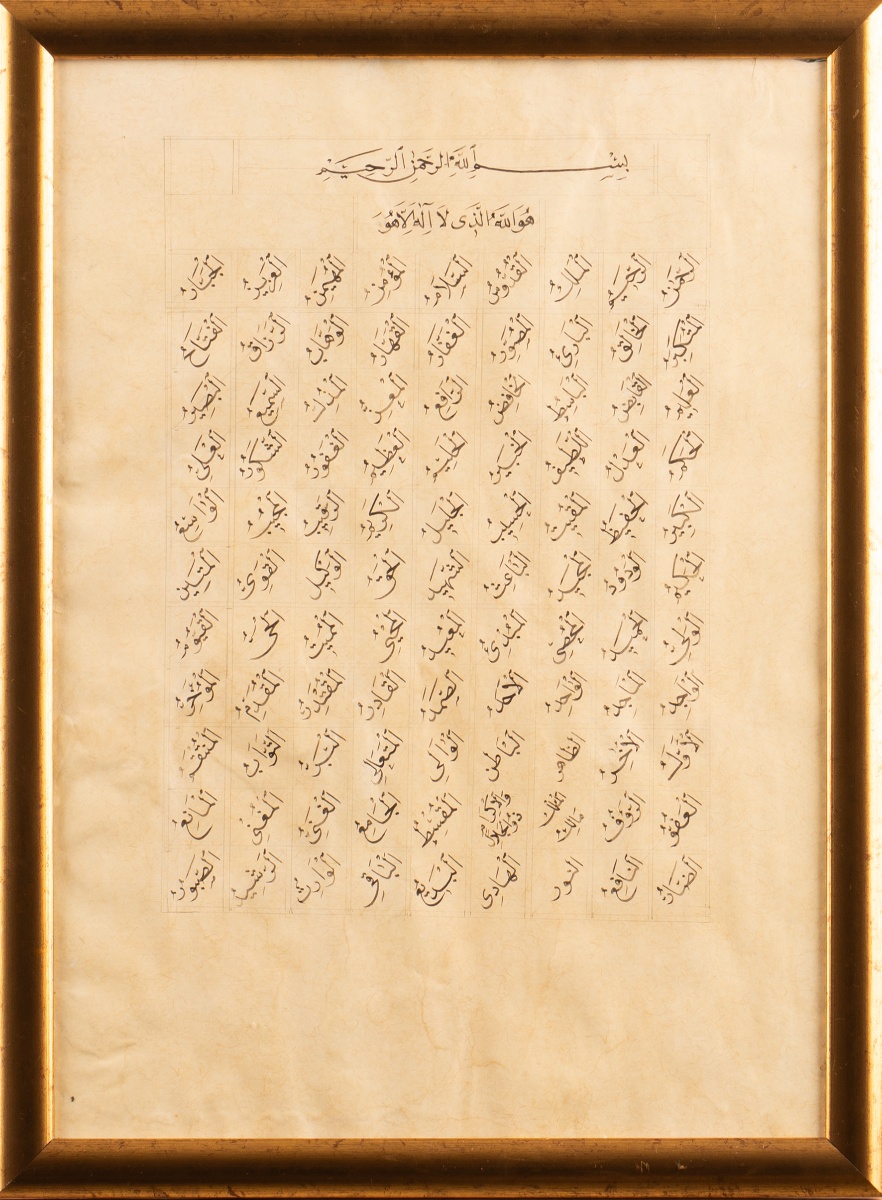 بِسْمِ اللهِ الرَّحْمٰنِ الرَّحِيْمِ
هُوَ اللهُ الَّذِى لَا اِلٰهَ اِلَّا هُوَ
اَلرَّحْمٰنُ اَلرَّحِيْمُ اَلْمَلِكُ اَلْقُدُّوْسُ اَلسَّلَامُ اَلْمُؤْمِنُ اَلْمُهَيْمِنُ اَلْعَزِيْزُ اَلْجَبَّارُ
اَلْمُتَكَبِّرُ اَلْخَالِقُ اَلْبَارِئُ اَلْمُصَوِّرُ اَلْغَفَّارُ اَلْقَهَّارُ اَلْوَهَّابُ اَلرَّزَّاقُ اَلْفَتَّاحُ
اَلْعَلِيْمُ اَلْقَابِضُ اَلْبَاسِطُ اَلْخَافِضُ اَلرَّافِعُ اَلْمُعِزُّ اَلْمُذِلُّ اَلسَّمِيْعُ اَلْبَصِيْرُ
اَلْحَكَمُ اَلْعَدْلُ اَللَّطِيْفُ اَلْخَبِيْرُ اَلْحَلِيْمُ اَلْعَظِيْمُ اَلْغَفُوْرُ اَلشَّكُوْرُ اَلْعَلِىُّ
اَلْكَبِيْرُ اَلْحَفِيْظُ اَلْمُقِيْتُ اَلْحَسِيْبُ اَلْجَلِيْلُ اَلْكَرِيْمُ اَلرَّقِيْبُ اَلْمُجِيْبُ اَلْوَاسِعُ
اَلْحَكِيْمُ اَلْوَدُوْدُ اَلْمَجِيْدُ اَلْبَاعِثُ اَلشَّهِيْدُ اَلْحَقُّ اَلْوَكِيْلُ اَلْقَوِىُّ اَلْمَتِيْنُ
اَلْوَلِىُّ اَلْحَمِيْدُ اَلْمُحْصِى اَلْمُبْدِئُ اَلْمُعِيْدُ اَلْمُحْيِى اَلْمُمِيْتُ اَلْحَىُّ اَلْقَيُّوْمُ
اَلْوَاجِدُ اَلْمَاجِدُ اَلْوَاحِدُ اَلْاَحَدُ اَلصَّمَدُ اَلْقَادِرُ اَلْمُقْتَدِرُ اَلْمُقَدِّمُ اَلْمُؤَخِّرُ
اَلْاَوَّلُ اَلْاٰخِرُ الظاهر اَلْبَاطِنُ اَلْوَالِى اَلْمُتَعَالِى اَلْبَرُّ اَلتَّوَّابُ اَلْمُنْتَقِمُ
اَلْعَفُوُّ اَلرَّؤُفُ مَالِكُ الْمُلْكِ ذُو الْجَلَالِ وَالْاِكْرَامِ اَلْمُقْسِطُ اَلْجَامِعُ اَلْغَنِىُّ اَلْمُغْنِى اَلْمَانِعُ
اَلضَّارُّ اَلنَّافِعُ النور اَلْهَادِى اَلْبَدِيْعُ اَلْبَاقِى اَلْوَارِثُ اَلرَّشِيْدُ اَلصَّبُوْرُ